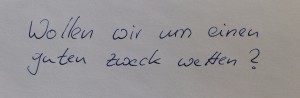 Wollen wir um einen
guten zweck wetten?